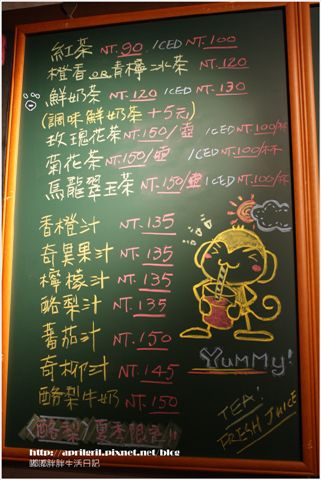 紅茶 NT.90 ICED NT.100
橙香OR青檸冰茶 NT.120
鮮奶茶 NT.120 ICED NT.130
(調味鮮奶茶+5元)
玫瑰花茶 NT.150/壺 ICED NT.100/杯
菊花茶 NT.150/壺 ICED NT.100/杯
馬龍翠玉茶 NT.150/壺 ICED NT.100/杯
香橙汁 NT.135
奇異果汁 NT.135
檸檬汁 NT.135
酪梨汁 NT.135
蕃茄汁 NT.150
奇柳汁 NT.145
酪梨牛奶 NT.150
YuMMy!
TEA!
FRESH JUICE
(酪梨)夏季限定!!
http://aprilgril.pixnet.net/blog
嘟嘟胖胖生活日記